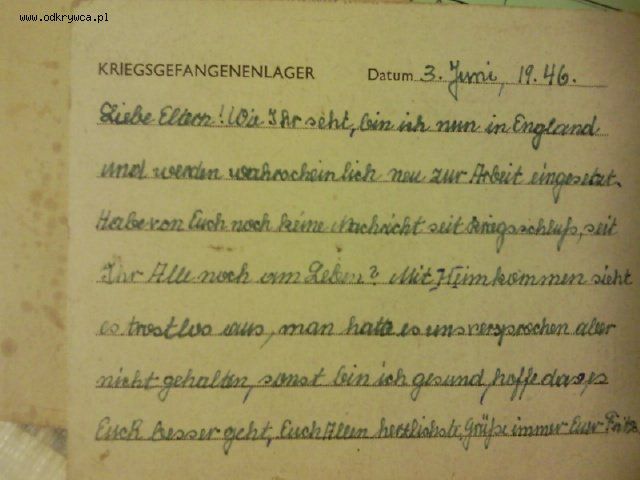 www.odkrywca.pl
KRIEGSGEFANGENENLAGER Datum 3. Juni, 19.46.
Liebe Eltern! Wie Ihr seht, bin ich nun in England
und werden wahrscheinlich neu zur Arbeit eingesetzt.
Habe von Euch noch keine Nachricht seit Kriegsschluß, seit
Ihr Alle noch am Leben? Mit Heimkommen sieht
es trostlos aus, man hat es uns versprochen aber
nicht gehalten, sonst bin ich gesund, hoffe das, es
Euch besser geht, Euch Allen herzlichste Grüße immer Euer